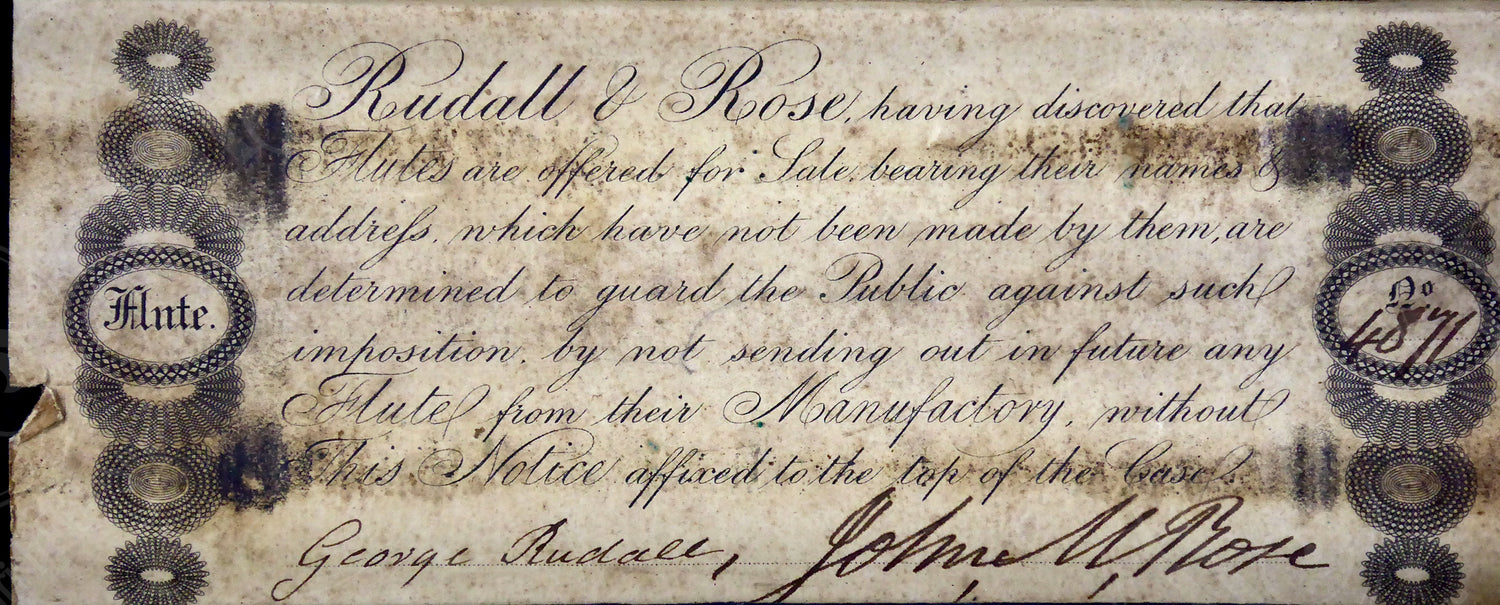 Rudall & Rose, having discovered that
Flutes are offered for Sale, bearing their names &
addreſs, which have not been made by them, are
determined to guard the Public against such
imposition, by not sending out in future any
Flute from their Manufactory, without
This Notice affixed to the top of the Case.
Flute.
No
4871
George Rudall, John M Rose